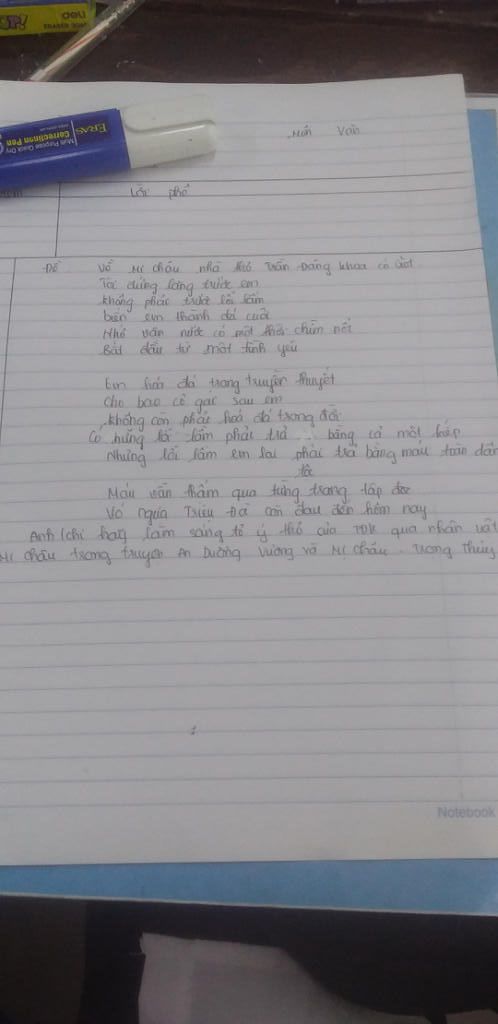 ERAS
Correction Pen
Multi Purpose Quick Dry
Môn Văn
Lời phê
Đề Về Mị Châu nhà thơ Trần Đăng Khoa có viết
Tôi đứng lặng trước em
Không phải trước lỗi lầm
biến em thành đá cuội
Nhớ vận nước có một thời chìm nổi
Bắt đầu từ một tình yêu
Em hoá đá trong truyền thuyết
Cho bao cô gái sau em
không còn phải hoá đá trong đời
Có những lỗi lầm phải trả bằng cả một kiếp
Nhưng lỗi lầm em lại phải trả bằng máu toàn dân
tộc
Máu vẫn thấm qua từng trang tập đọc
Vó ngựa Triệu Đà còn đau đến hôm nay
Anh (chị hãy làm sáng tỏ ý thơ của TĐK qua nhân vật
Mị Châu trong truyện An Dương Vương và Mị Châu - Trọng Thủy
Notebook